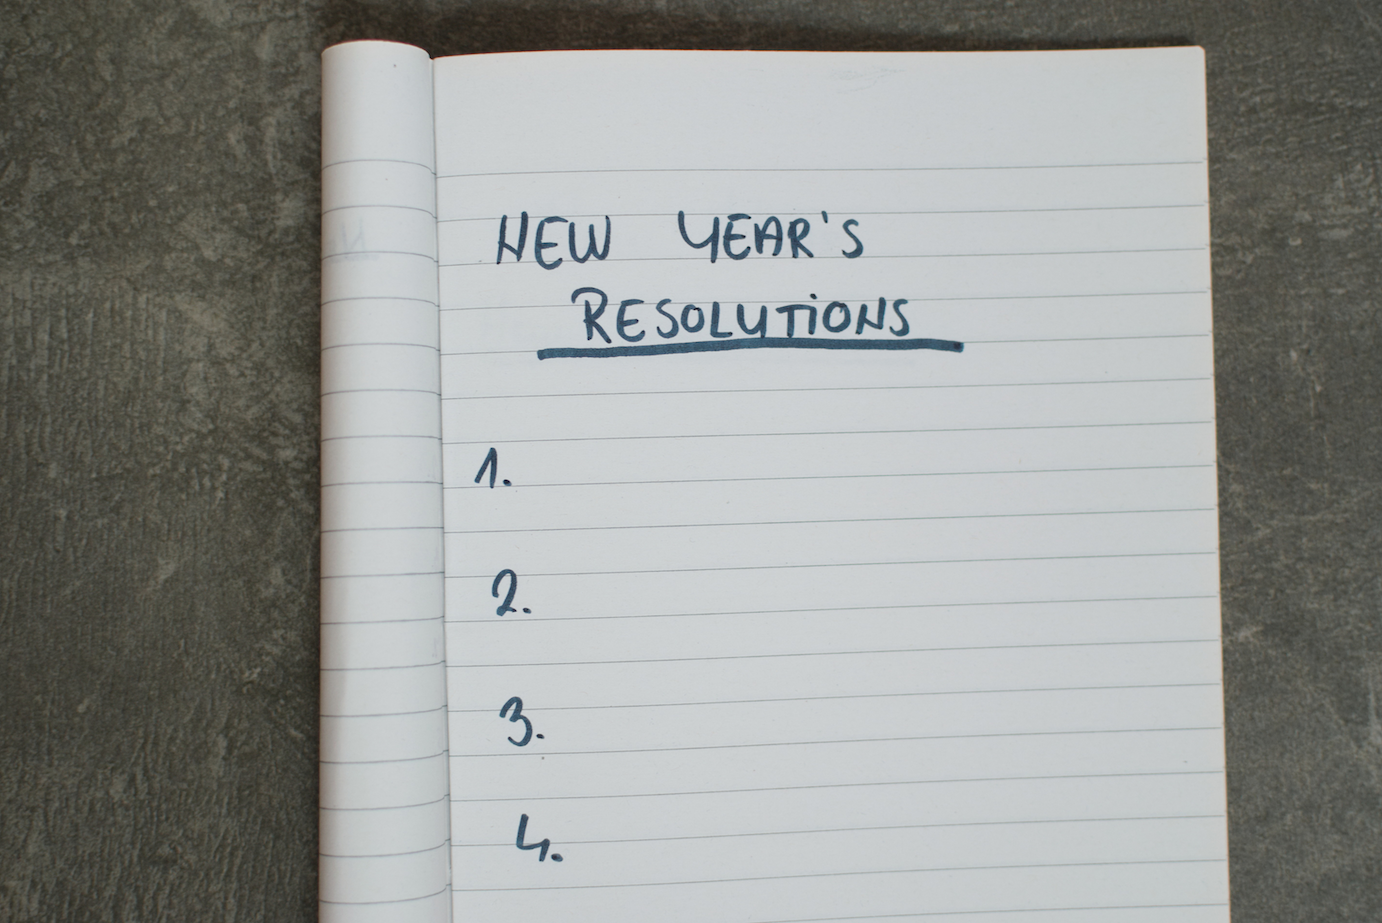 NEW YEAR'S
RESOLUTIONS
1.
2.
3.
4.